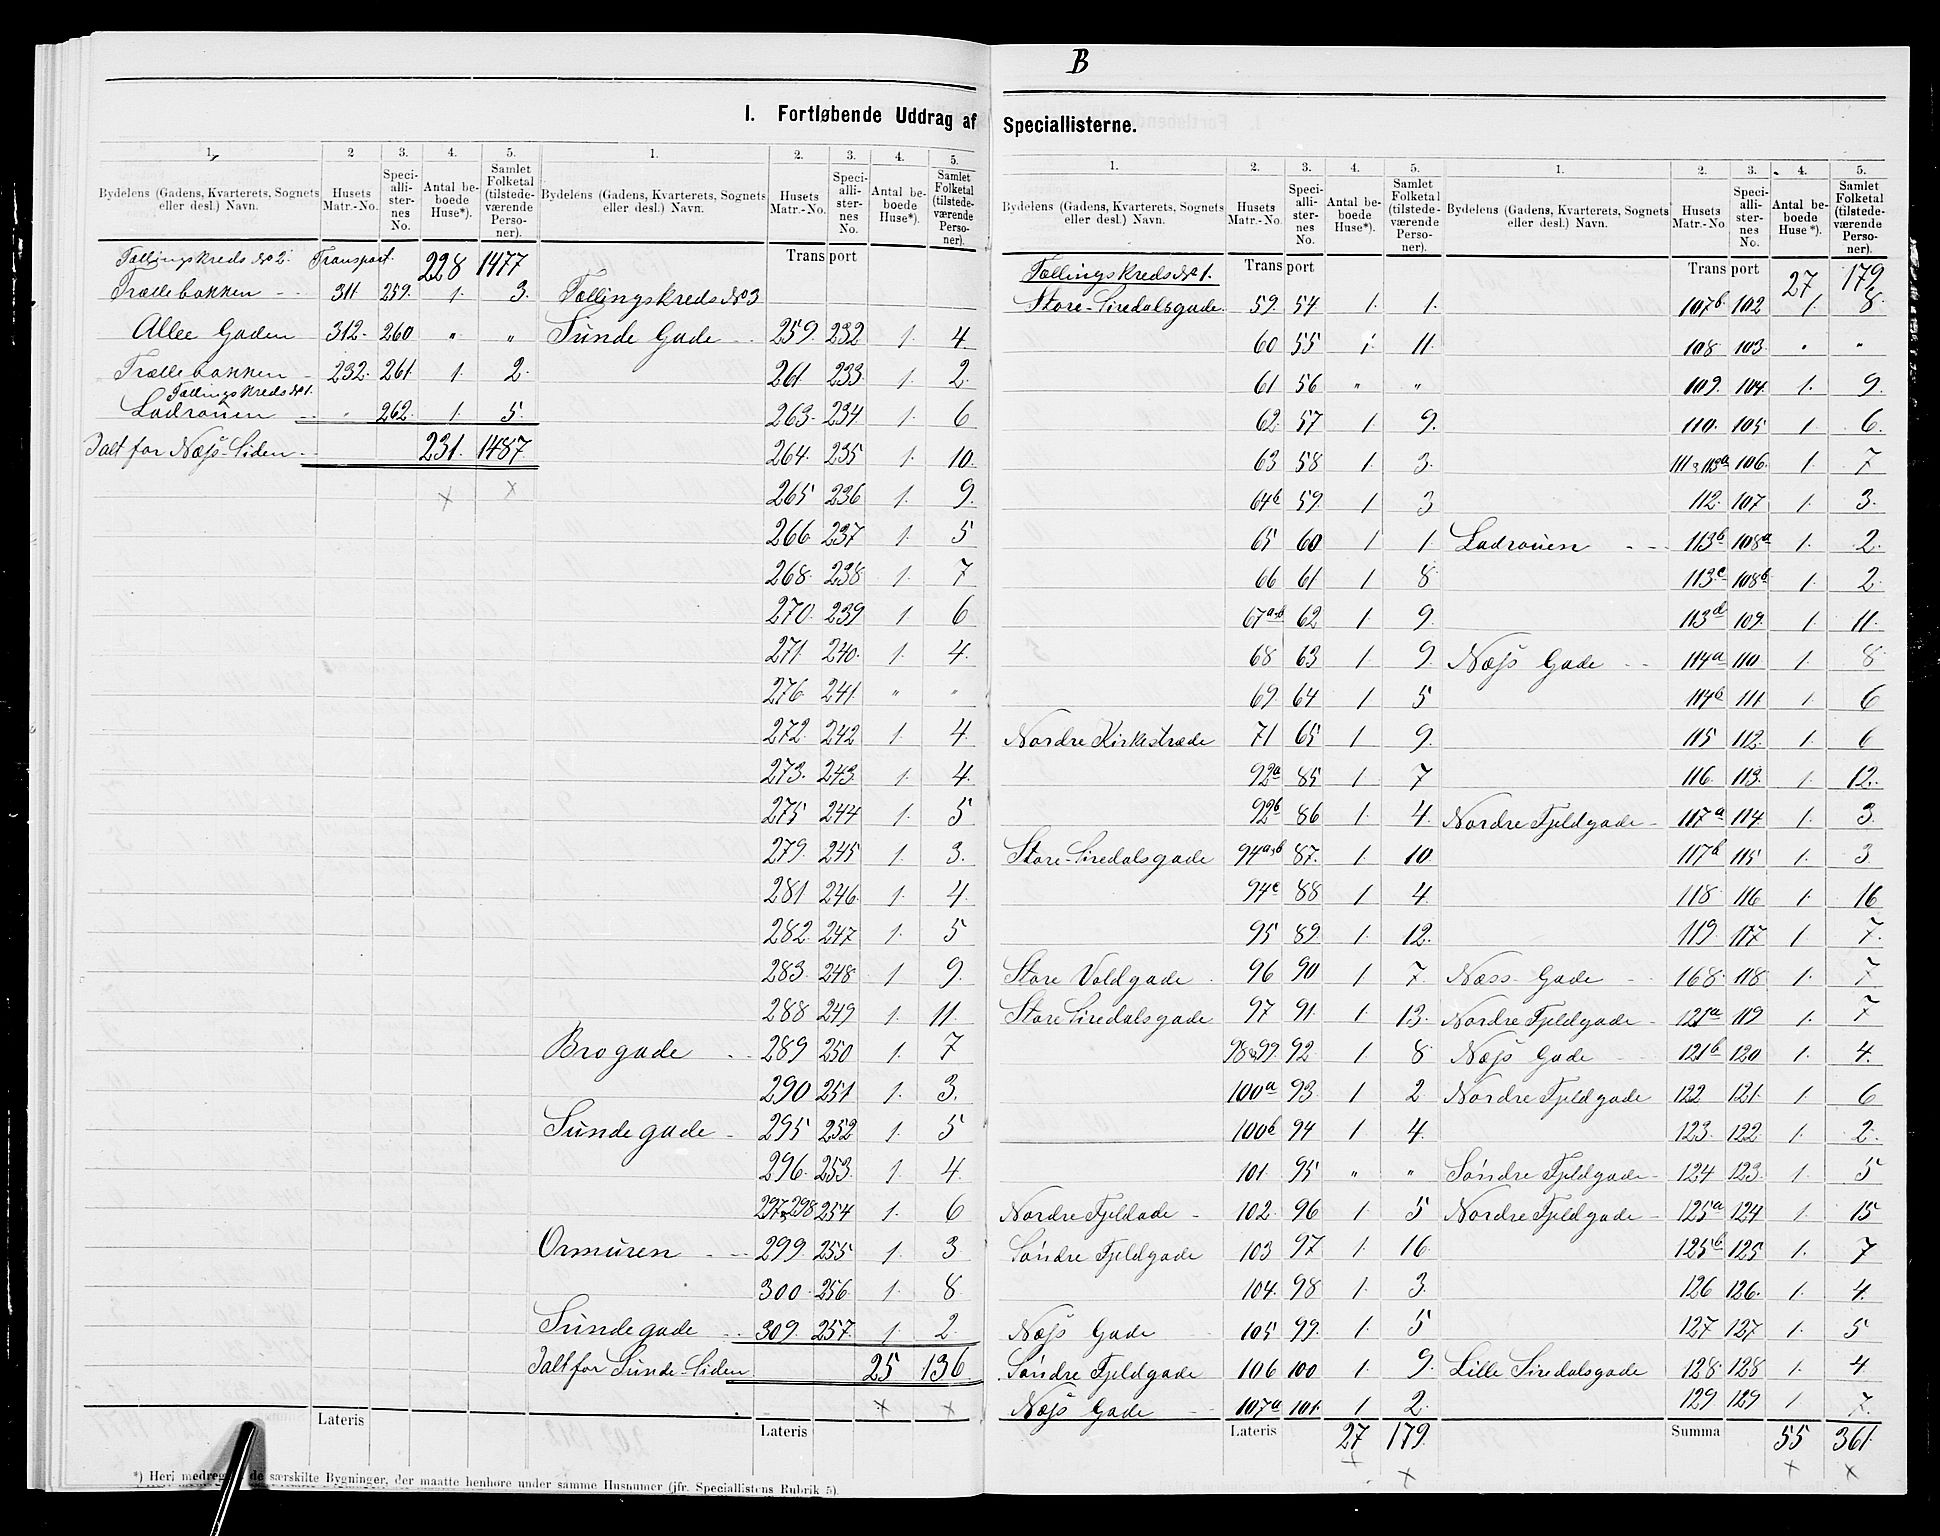 B
I. Fortløbende Uddrag af
Speciallisterne.
1. 2 3. 4. 5.
Bydelens (Gadens, Kvarterets, Sognets eller desl.) Navn. Husets Matr.-No. Speciallisternes No. Antal beboede Huse*). Samlet Folketal (tilstedeværende Personer).
Tællingskreds No 2. Transport. 228 1477
Trællebakken 311 259. 1. 3.
Allee Gaden 312. 260 " "
Trællebakken 232. 261 1. 2.
Tællingskreds No 1.
Ladrauen " 262. 1. 5.
Ialt for Næss-Siden 231. 1487.
× ×
Lateris
1. 2. 3. 4. 5.
Bydelens (Gadens, Kvarterets, Sognets eller desl.) Navn. Husets Matr.-No. Speciallisternes No. Antal beboede Huse*). Samlet Folketal (tilstedeværende Personer).
Transport
Tællingskreds No 3
Sunde Gade 259. 232 1. 4
261 233 1. 2.
263. 234 1. 6
264. 235 1. 10.
265 236 1. 9.
266. 237 1. 5
268. 238 1. 7
270. 239 1. 6
271. 240. 1. 4.
276. 241. " "
272. 242 1. 4.
273. 243. 1. 4.
275 244 1. 5
279. 245 1. 3.
281 246. 1. 4.
282. 247 1. 5
283. 248. 1. 9.
288 249 1. 11.
Brogade 289 250 1. 7
290 251 1. 3.
Sundegade 295 252 1. 5
296. 253. 1. 4
297&298 254 1. 6
Ormuren 299. 255 1. 3
300. 256. 1. 8
Sundegade 309. 257. 1. 2.
Ialt for Sunde-Siden 25 136
× ×
Lateris
*) Heri medregnes de særskilte Bygninger, der maatte henhøre under samme Husnumer (jfr. Speciallistens Rubrik 5).
1. 2. 3. 4. 5.
Bydelens (Gadens, Kvarterets, Sognets eller desl.) Navn. Husets Matr.-No. Speciallisternes No. Antal beboede Huse*). Samlet Folketal (tilstedeværende Personer).
Tællingskreds No 1. Transport
Store-Siredalsgade. 59. 54 1. 1.
60 55 1. 11.
61 56 " "
62. 57 1 9.
63 58 1. 3.
64b 59. 1 3
65 60 1 1.
66 61 1 8
67a&b 62 1. 9.
68 63 1 9.
69. 64 1. 5
Nordre Kirkestræde 71 65 1 9.
92a 85 1. 7
92b 86 1. 4.
Store-Siredalsgade 94a&b 87. 1. 10.
94c 88 1 4.
95 89. 1. 12.
Store Voldgade 96 90 1 7.
Store Siredalsgade 97 91. 1. 13.
98&99. 92. 1 8
100a 93. 1 2
100b 94 1 4.
101. 95 " "
Nordre Fjeldade 102. 96 1. 5
Søndre Fjeldgade 103 97 1. 16.
104. 98 1. 3.
Næss Gade 105 99. 1. 5
Søndre Fjeldgade 106 100 1 9.
Næss Gade 107a 101. 1 2.
Lateris 27 179.
× ×
1. 2. 3. 4. 5.
Bydelens (Gadens, Kvarterets, Sognets eller desl.) Navn. Husets Matr.-No. Speciallisternes No. Antal beboede Huse*). Samlet Folketal (tilstedeværende Personer).
Transport 27 179
107b. 102 1. 8.
108. 103. " "
109. 104. 1. 9.
110. 105 1 6.
111&113a 106. 1. 7
112. 107 1. 3.
Ladrauen 113b 108a 1. 2.
113c 108b 1 2.
113d 109. 1. 11.
Næss Gade 114a 110 1. 8
114b 111. 1. 6
115 112. 1. 6
116. 113. 1. 12.
Nordre Fjeldgade 117a 114. 1. 3.
117b 115 1. 3
118 116 1. 16
119. 117 1. 7.
Næss-Gade 168. 118. 1. 7
Nordre Fjeldgade 121a 119 1. 7
Næss Gade 121b 120 1. 4.
Nordre Fjeldgade 122 121. 1. 6
123. 122. 1. 2.
Søndre Fjeldgade 124 123. 1. 5
Nordre Fjeldgade 125a 124 1. 15
125b 125 1. 7
126 126. 1. 4.
127 127 1. 5
Lille Siredalsgade 128. 128 1. 4
129 129 1 7.
Summa 55 361.
× ×